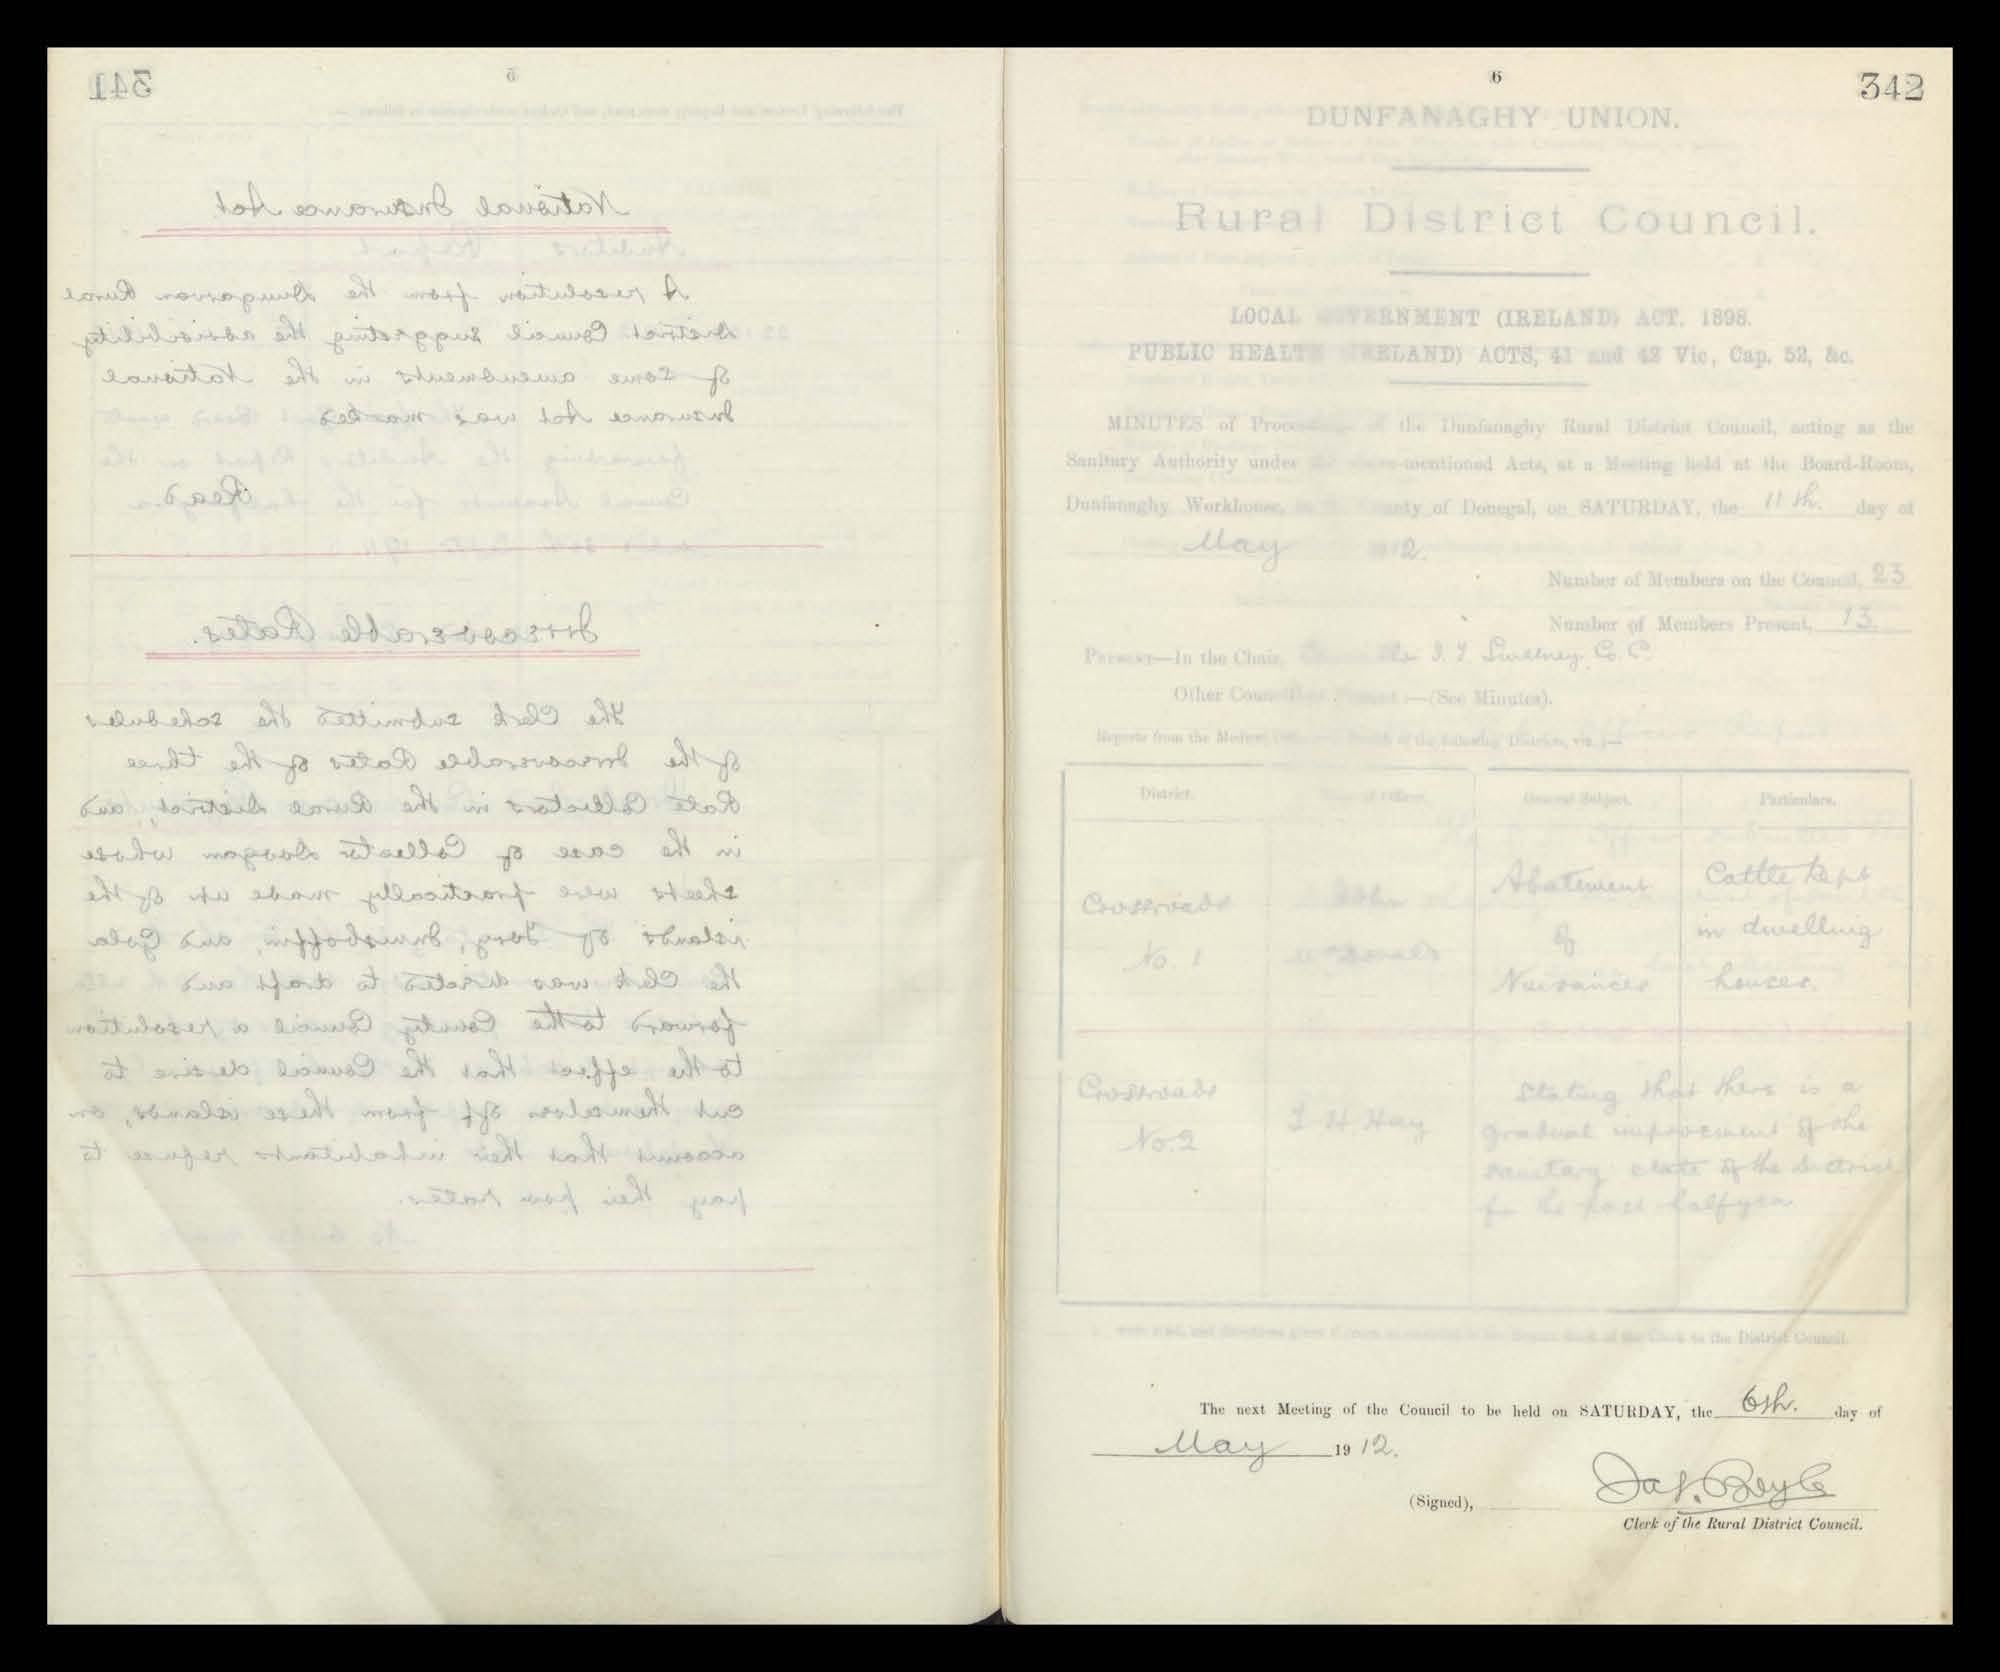 341
6
National Insurance Act
A resolution from the Dungarvan Rural
District Council suggesting the advisibility
of some amendments in the National
Insurance Act was marked
Read.
Irrecoverable Rates.
The Clerk submitted the schedules
of the Irrecoverable Rates of the three
Rate Collectors in the Rural District, and
in the case of Collector Doogan whose
sheets were practically made up of the
islands of Tory, Innisboffin, and Gola
the Clerk was directed to draft and
forward to the County Council a resolution
to the effect that the Council desire to
cut themselves off from these islands, on
account that their inhabitants refuse to
pay their poor rates.
6
342
DUNFANAGHY UNION.
Rural District Council.
LOCAL GOVERNMENT (IRELAND) ACT, 1898.
PUBLIC HEALTH (IRELAND) ACTS, 41 and 42 Vic, Cap. 52, &c.
MINUTES of Proceedings of the Dunfanaghy Rural District Council, acting as the
Sanitary Authority under the above-mentioned Acts, at a Meeting held at the Board-Room,
Dunfanaghy Workhouse, in the County of Donegal, on SATURDAY, the 11th. day of
May 1912.
Number of Members on the Council, 23
Number of Members Present, 13.
PRESENT—In the Chair, J. F. Sweeney Co. C.
Other Councillors Present:—(See Minutes).
Reports from the Medical Officers of Health of the following Districts, viz.:—
District. Name of Officer. General Subject. Particulars.
Crossroads No. 1
John McDonald
Abatement of Nuisances
Cattle kept in dwelling houses.
Crossroads No. 2
J H Hay
Stating that there is a
gradual improvement of the
sanitary state of the District
for the past halfyear
were read, and directions given to the Clerk to the District Council.
The next Meeting of the Council to be held on SATURDAY, the 6th. day of
May 1912.
(Signed), Jas. Boyle
Clerk of the Rural District Council.